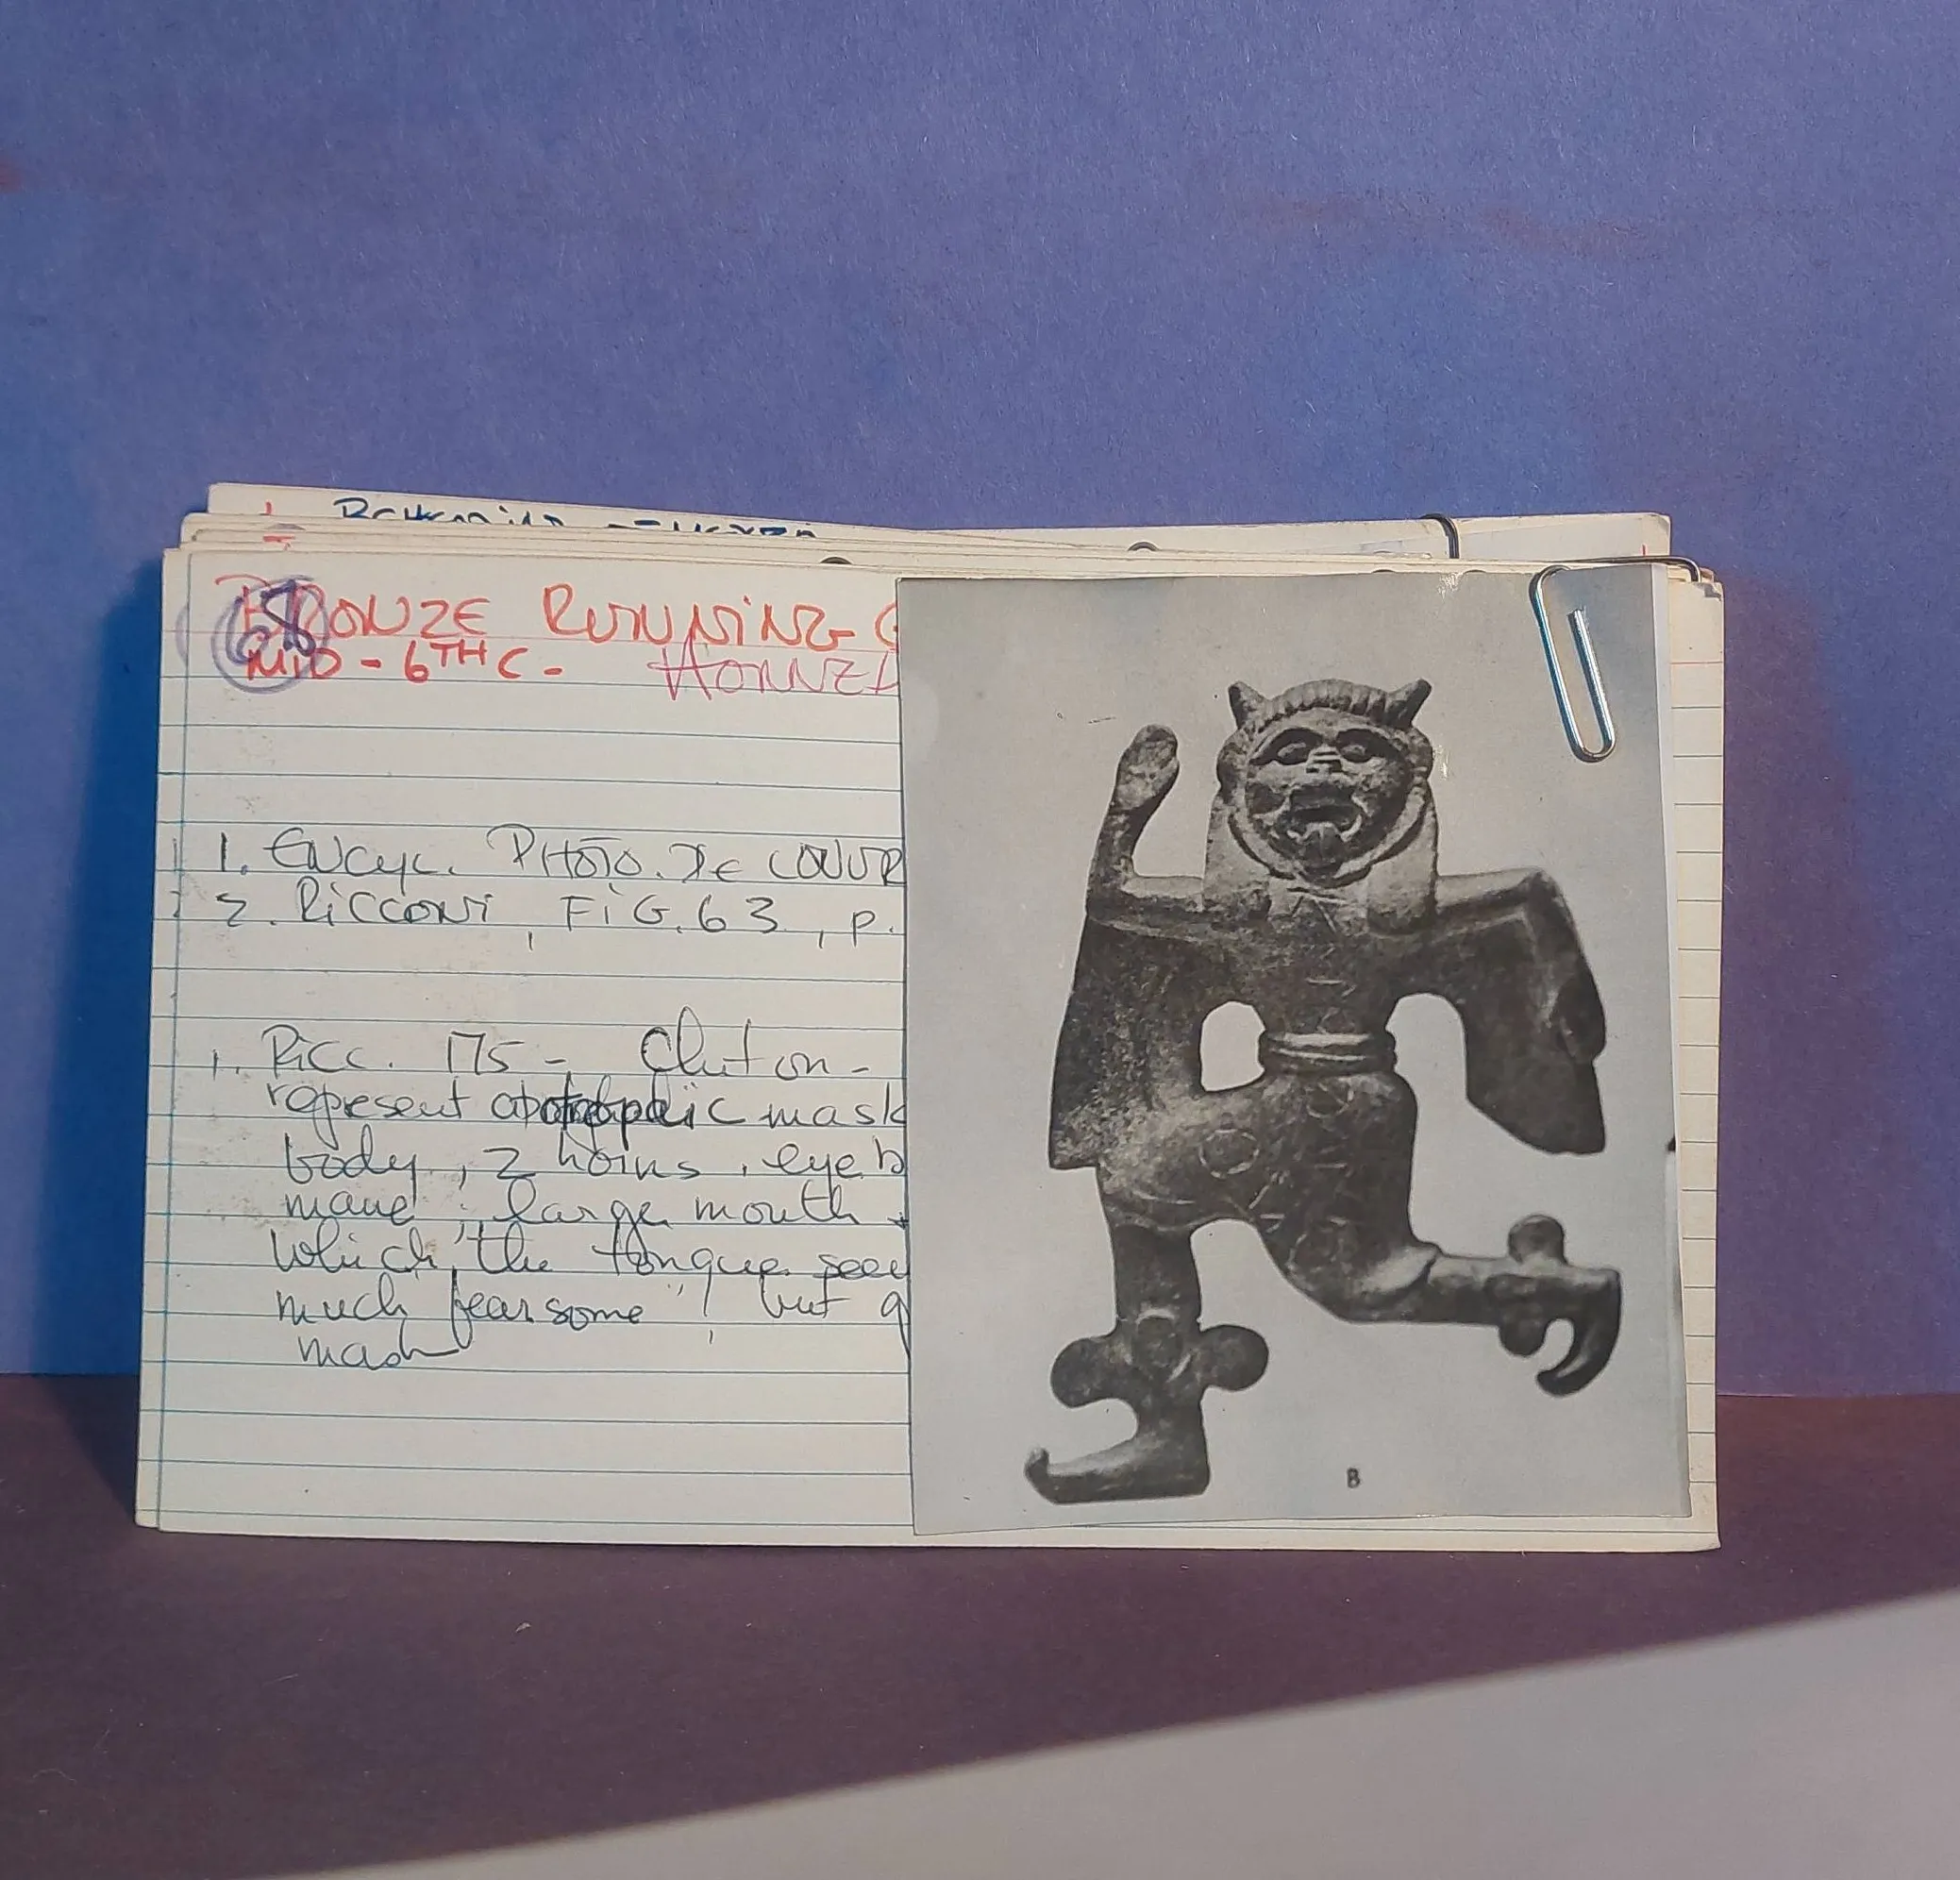 68
BRONZE RUNNING G
MID - 6TH C - HORNED
1. ENCYC. PHOTO. DE LOUVR
2. RICCONI, FIG. 63, P.
1. RICC. 175 - Chiton -
represent apotropaïc mask
body, 2 horns, eyeb
mane; large mouth
which "the tongue seem
much fearsome"! but g
mask
B